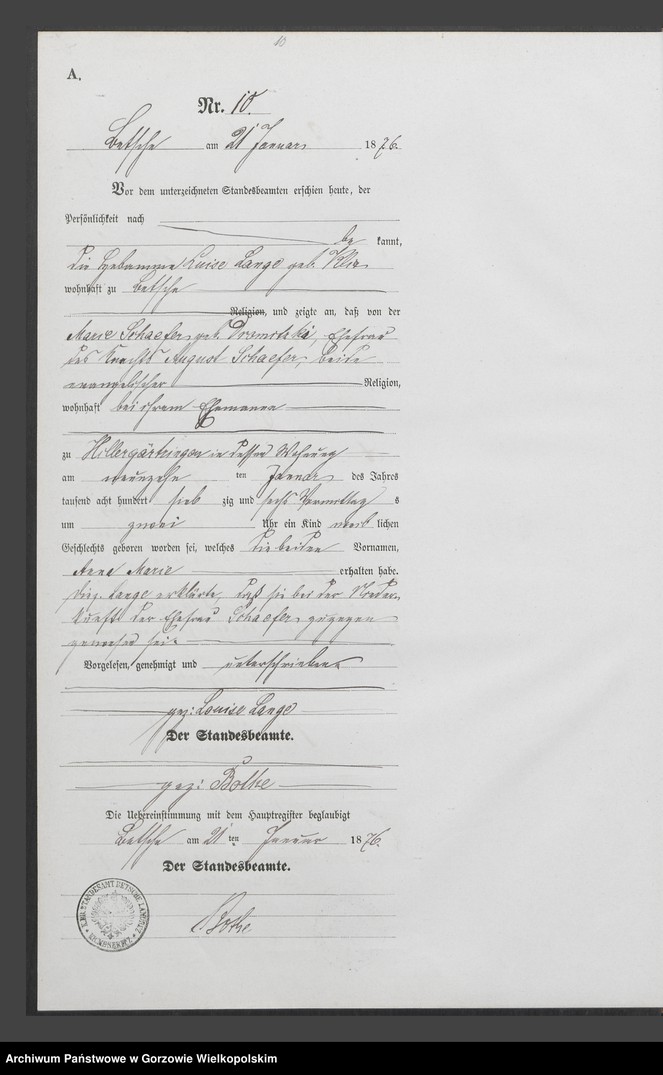 10
A.
Nr. 10.
Betsche am 21 Januar 1876.
Vor dem unterzeichneten Standesbeamten erschien heute, der
Persönlichkeit nach
be kannt,
die Hebamme Luise Lange geb.
wohnhaft zu Betsche
Religion, und zeigte an, daß von der
Marie Schaefer, geb. Ehefrau
des Knechts August Schaefer, beide
evangelischer Religion,
wohnhaft bei ihrem Ehemanne
zu Hilbergärtringen in dessen Wohnung
am neunzehn ten Januar des Jahres
tausend acht hundert sieb zig und sechs Vormittag s
um zwei Uhr ein Kind weib lichen
Geschlechts geboren worden sei, welches die beiden Vornamen,
Anna Marie erhalten habe.
Lange erklärte, daß sie bei der Nieder-
kunft der Ehefrau Schaefer zugegen
gewesen sei.
Vorgelesen, genehmigt und unterschrieben
gez: Louise Lange
Der Standesbeamte.
gez: Bothe
Die Uebereinstimmung mit dem Hauptregister beglaubigt
Betsche am 21 ten Januar 1876.
Der Standesbeamte.
Bothe
Archiwum Państwowe w Gorzowie Wielkopolskim